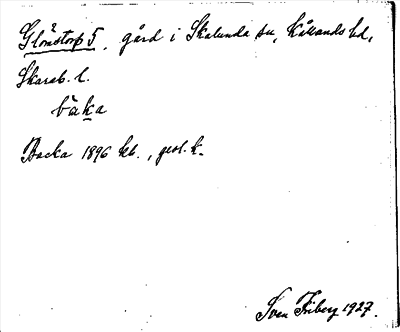 Glönstorp 5, gård i Skalunda sn, Kållands hd,
Skarab. l.
bàka
Backa 1896 kb., geol. k.
Sven Friberg 1927.